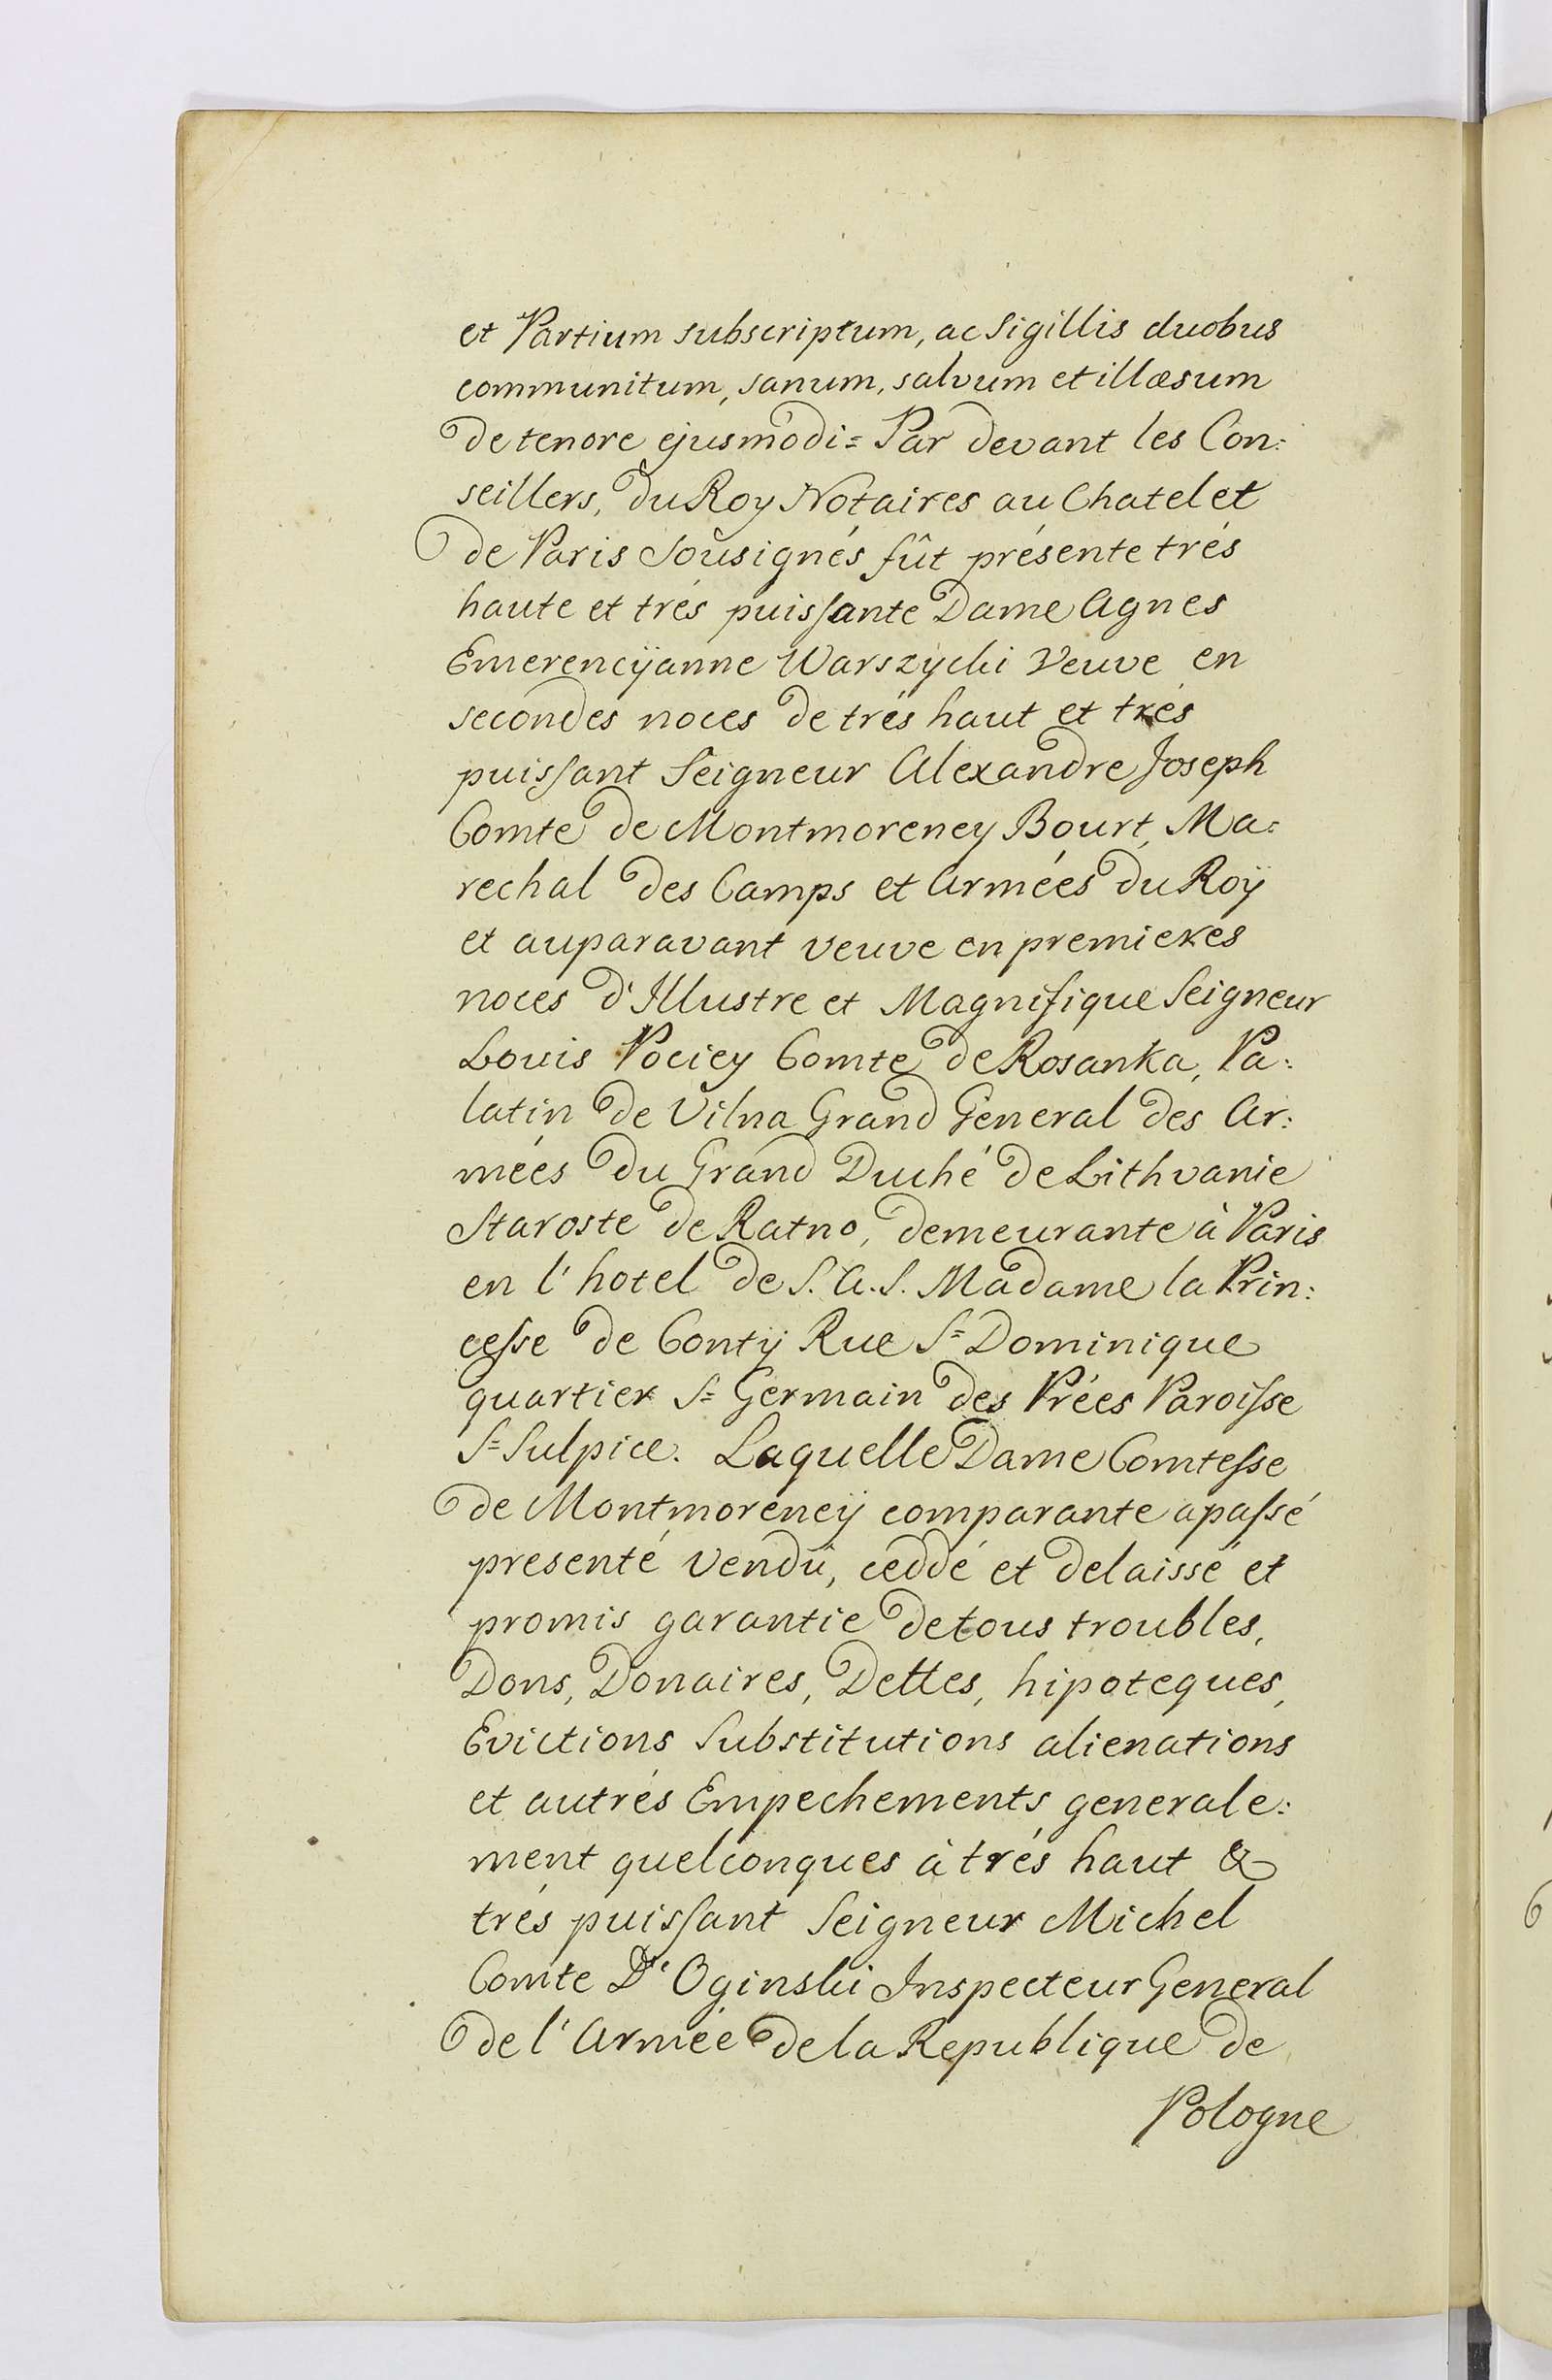 et Partium subscriptum, ac Sigillis duobus
communitum, sanum, salvum et illæsum
de tenore ejusmodi = Par devant les Con:
seillers, du Roy Notaires au Chatelet
de Paris Sousignés fût présente trés
haute et trés puissante Dame Agnes
Emerencÿanne Warszycki Veuve en
secondes noces de trés haut et trés
puissant Seigneur Alexandre Joseph
Comte de Montmorency Bourt, Ma=
rechal des Camps et Armées du Roÿ
et auparavant veuve en premieres
noces d'Illustre et Magnifique Seigneur
Louis Pociey Comte de Rosanka, Pa:
latin de Vilna Grand General des Ar:
mées du Grand Duché de Lithvanie
Staroste de Ratno, demeurante à Paris
en l'hotel de S. A. S. Madame la Prin:
cesse de Contÿ Rue S= Dominique
quartier S= Germain des Prées Paroisse
S= Sulpice. Laquelle Dame Comtesse
de Montmorencÿ comparante apassé
presenté vendû, ceddé et delaissé et
promis garantie de tous troubles,
Dons, Donaires, Dettes, hipoteques,
Evictions Substitutions alienations
et autrés Empechements generale:
ment quelconques à trés haut &
trés puissant Seigneur Michel
Comte D'Oginski Inspecteur General
de l'Armée de la Republique de
Pologne